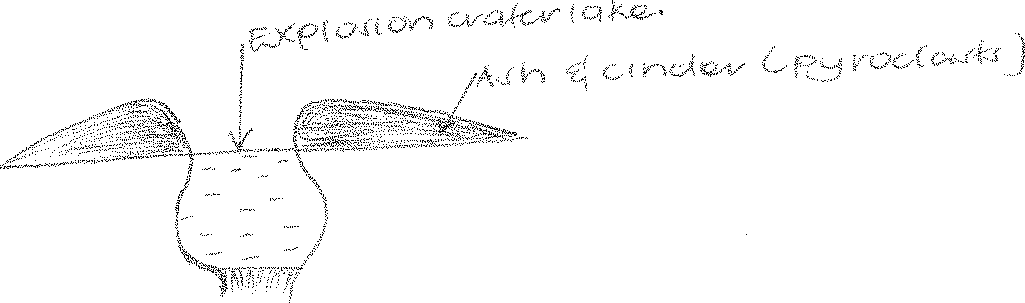 Explosion crater lake.
Ash & cinder (pyroclasts)